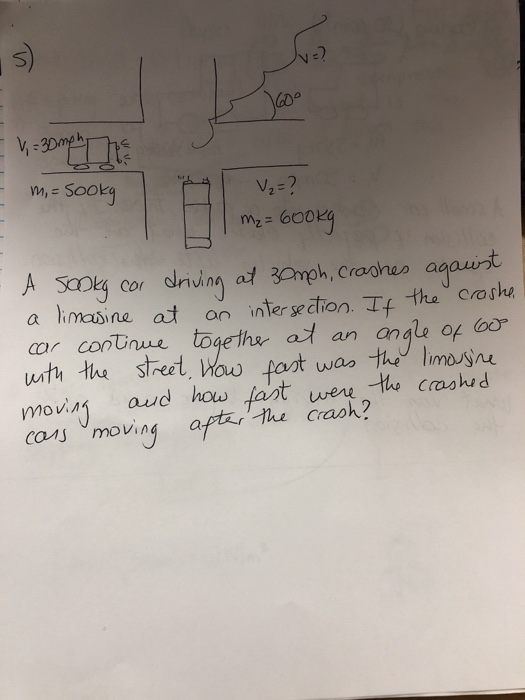 5)
V=?
60°
V₁=30mph
m₁=500kg
V₂=?
m₂=600kg
A 500kg car driving at 30mph, crashes against
a limosine at an intersection. If the crashe
car continue together at an angle of 60°
with the street. How fast was the limousine
moving and how fast were the crashed
cars moving after the crash?